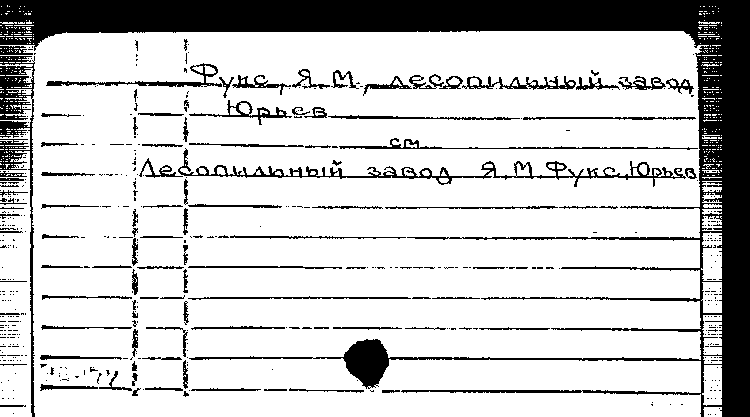 Фукс, Я.М., лесопильный завод
Юрьев
см
Лесопильный завод Я.М.Фукс, Юрьев